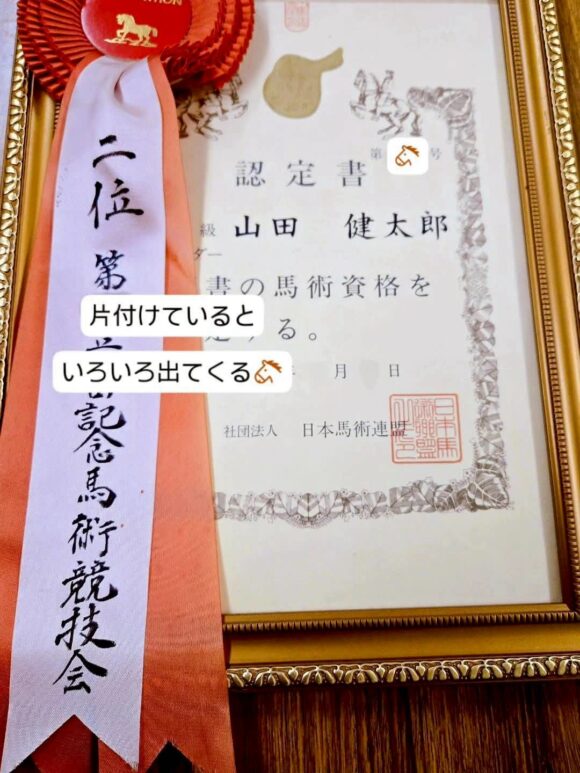 二位
第
記念馬術競技会
認定書
第 号
級 山田 健太郎
ダー
書の馬術資格を
する。
月 日
社団法人 日本馬術連盟
片付けていると
いろいろ出てくる